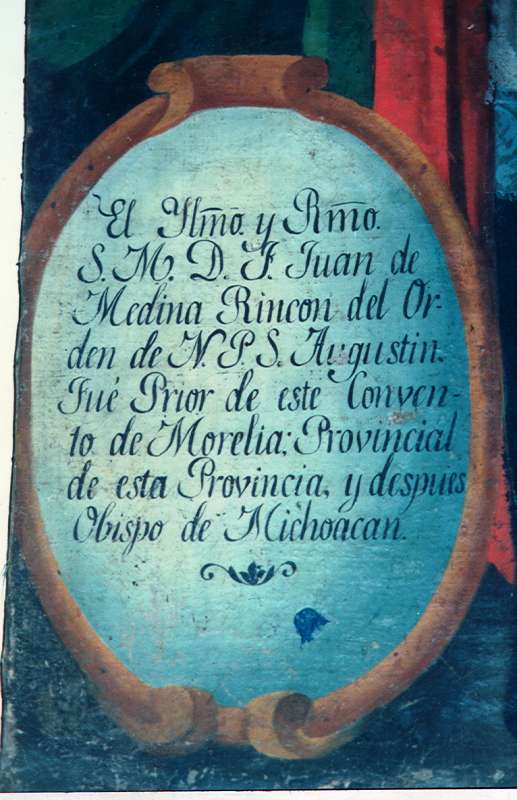 El Ylm̃o. y Rm̃o.
S. M. D. F. Juan de
Medina Rincon del Or-
den de N. P. S. Augustin.
Fué Prior de este Conven-
to de Morelia; Provincial
de esta Provincia, y despues
Obispo de Michoacan.